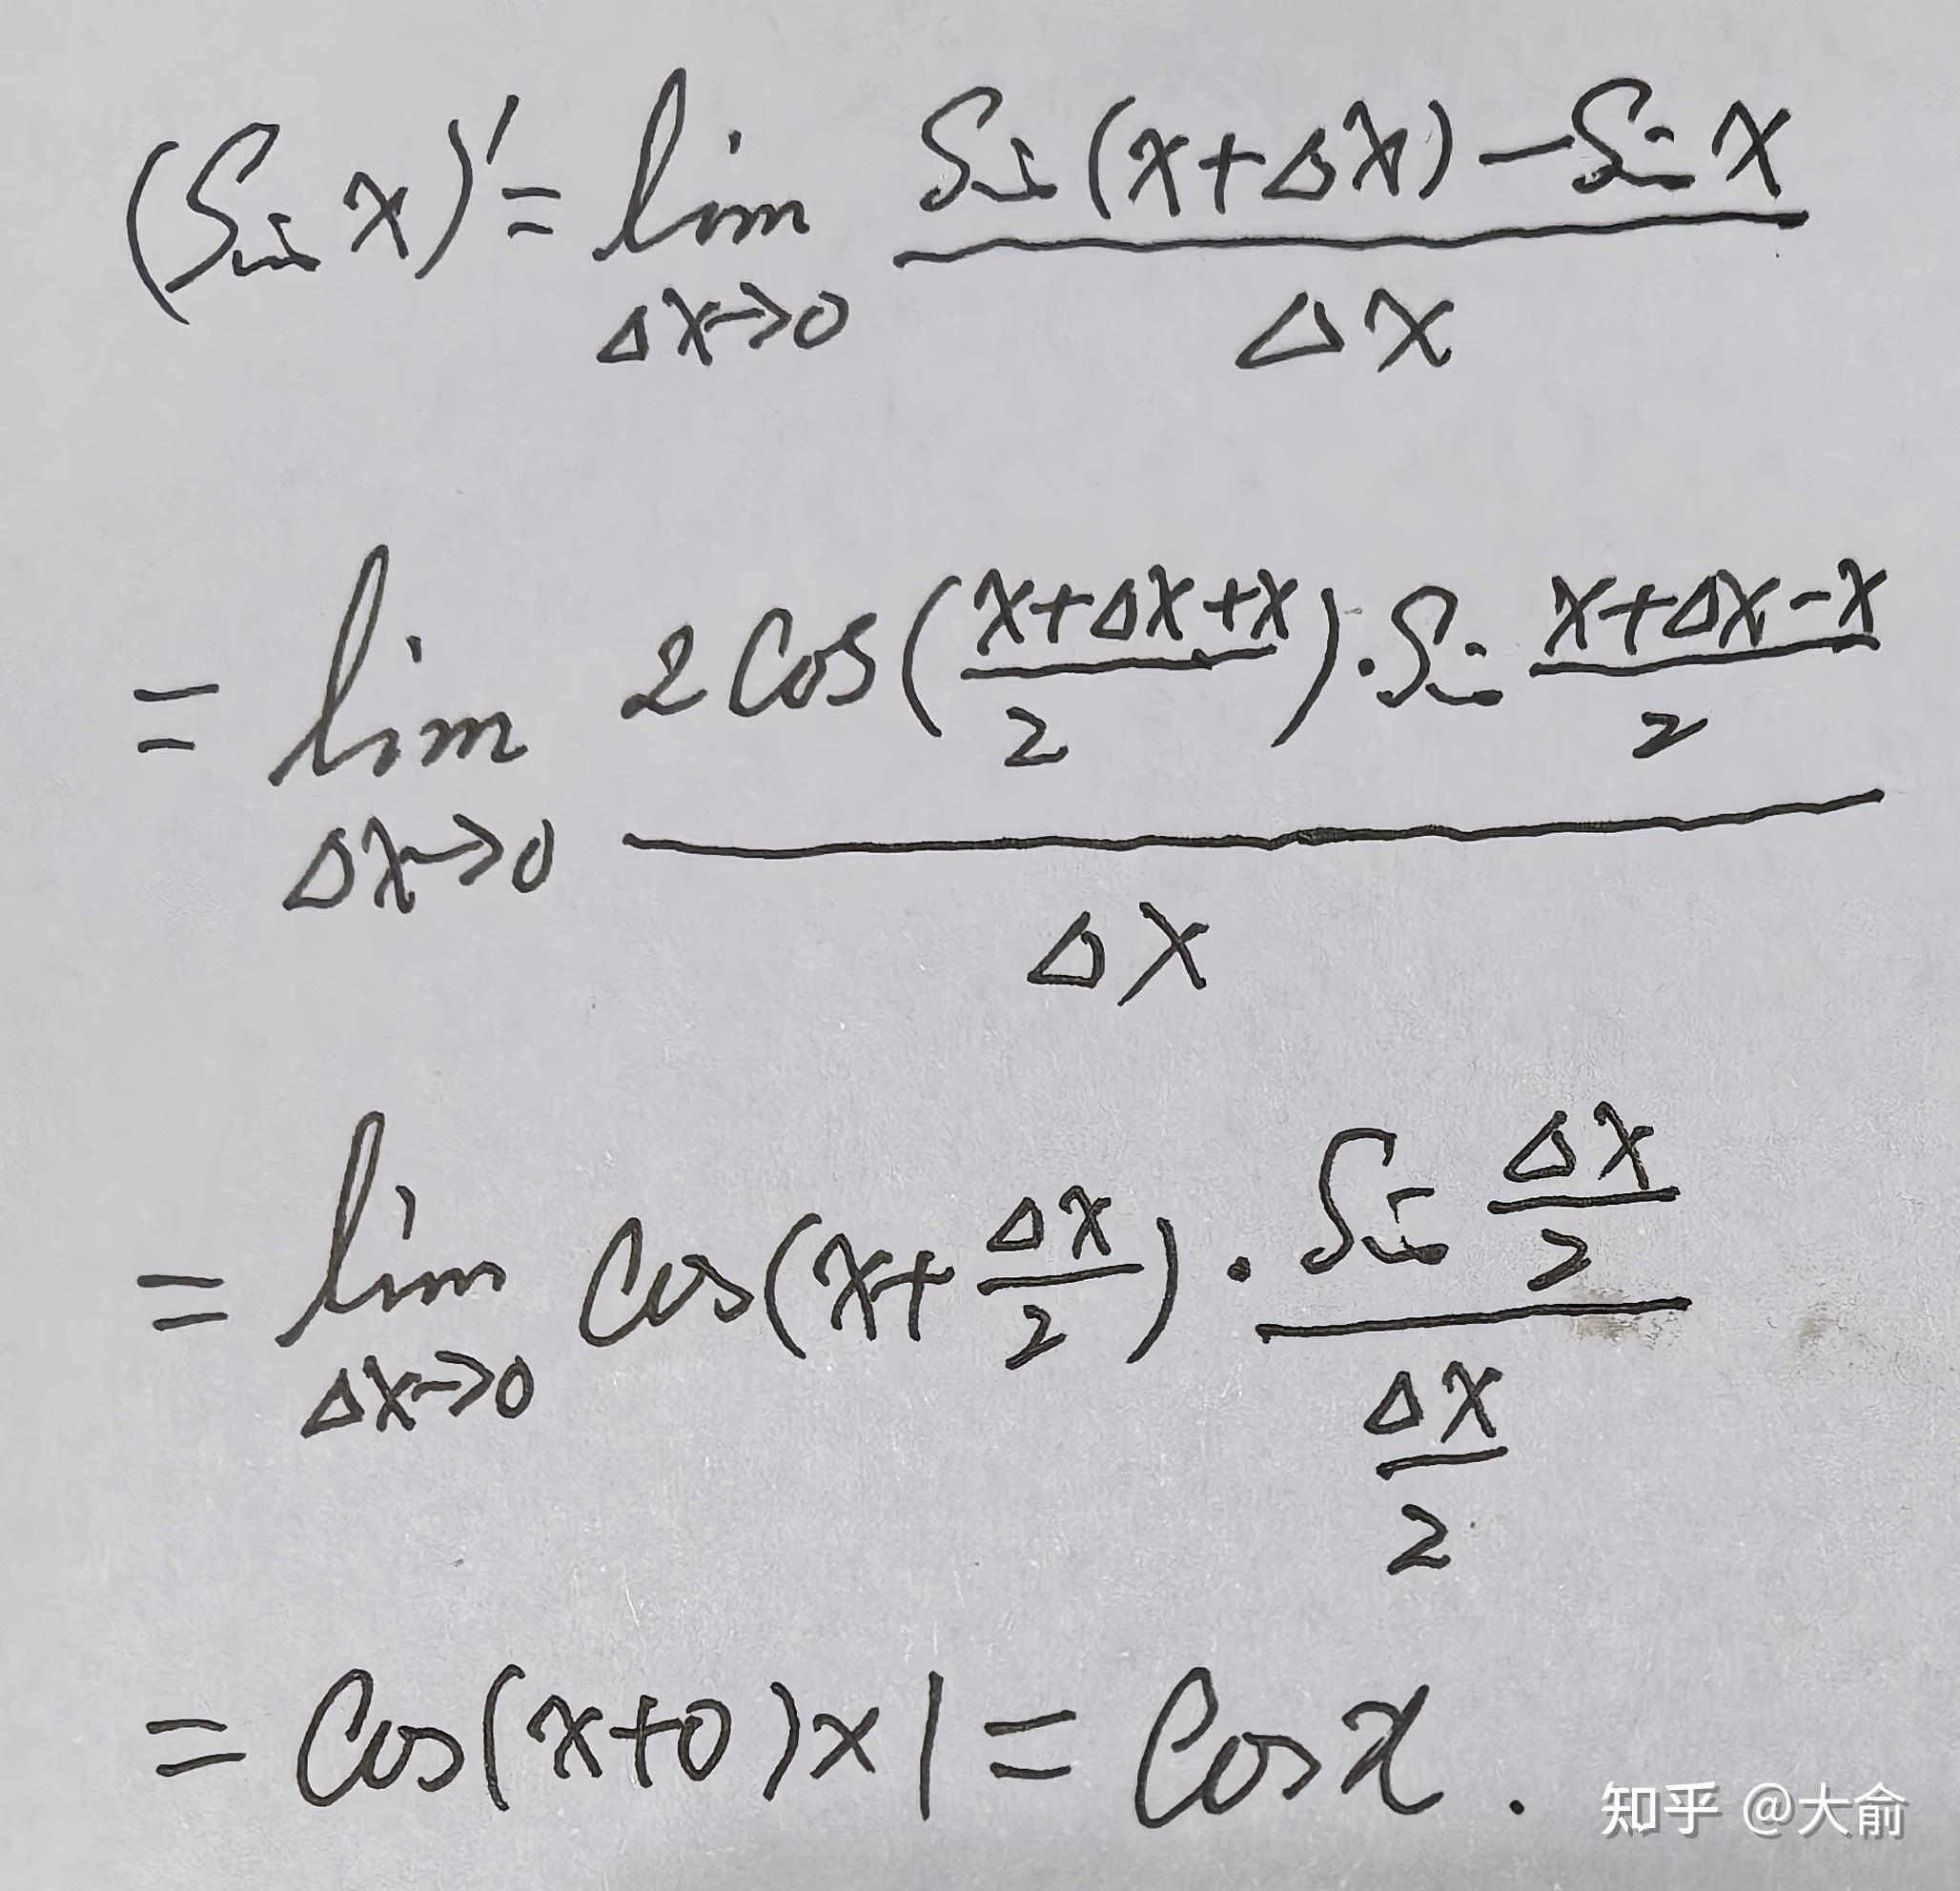 (Sin x)' = lim_{Δx→0} \frac{Sin(x+Δx)-Sin x}{Δx}
= lim_{Δx→0} \frac{2Cos(\frac{x+Δx+x}{2})·Sin\frac{x+Δx-x}{2}}{Δx}
= lim_{Δx→0} Cos(x+\frac{Δx}{2})·\frac{Sin\frac{Δx}{2}}{\frac{Δx}{2}}
= Cos(x+0)×1 = Cosx.
知乎 @大俞